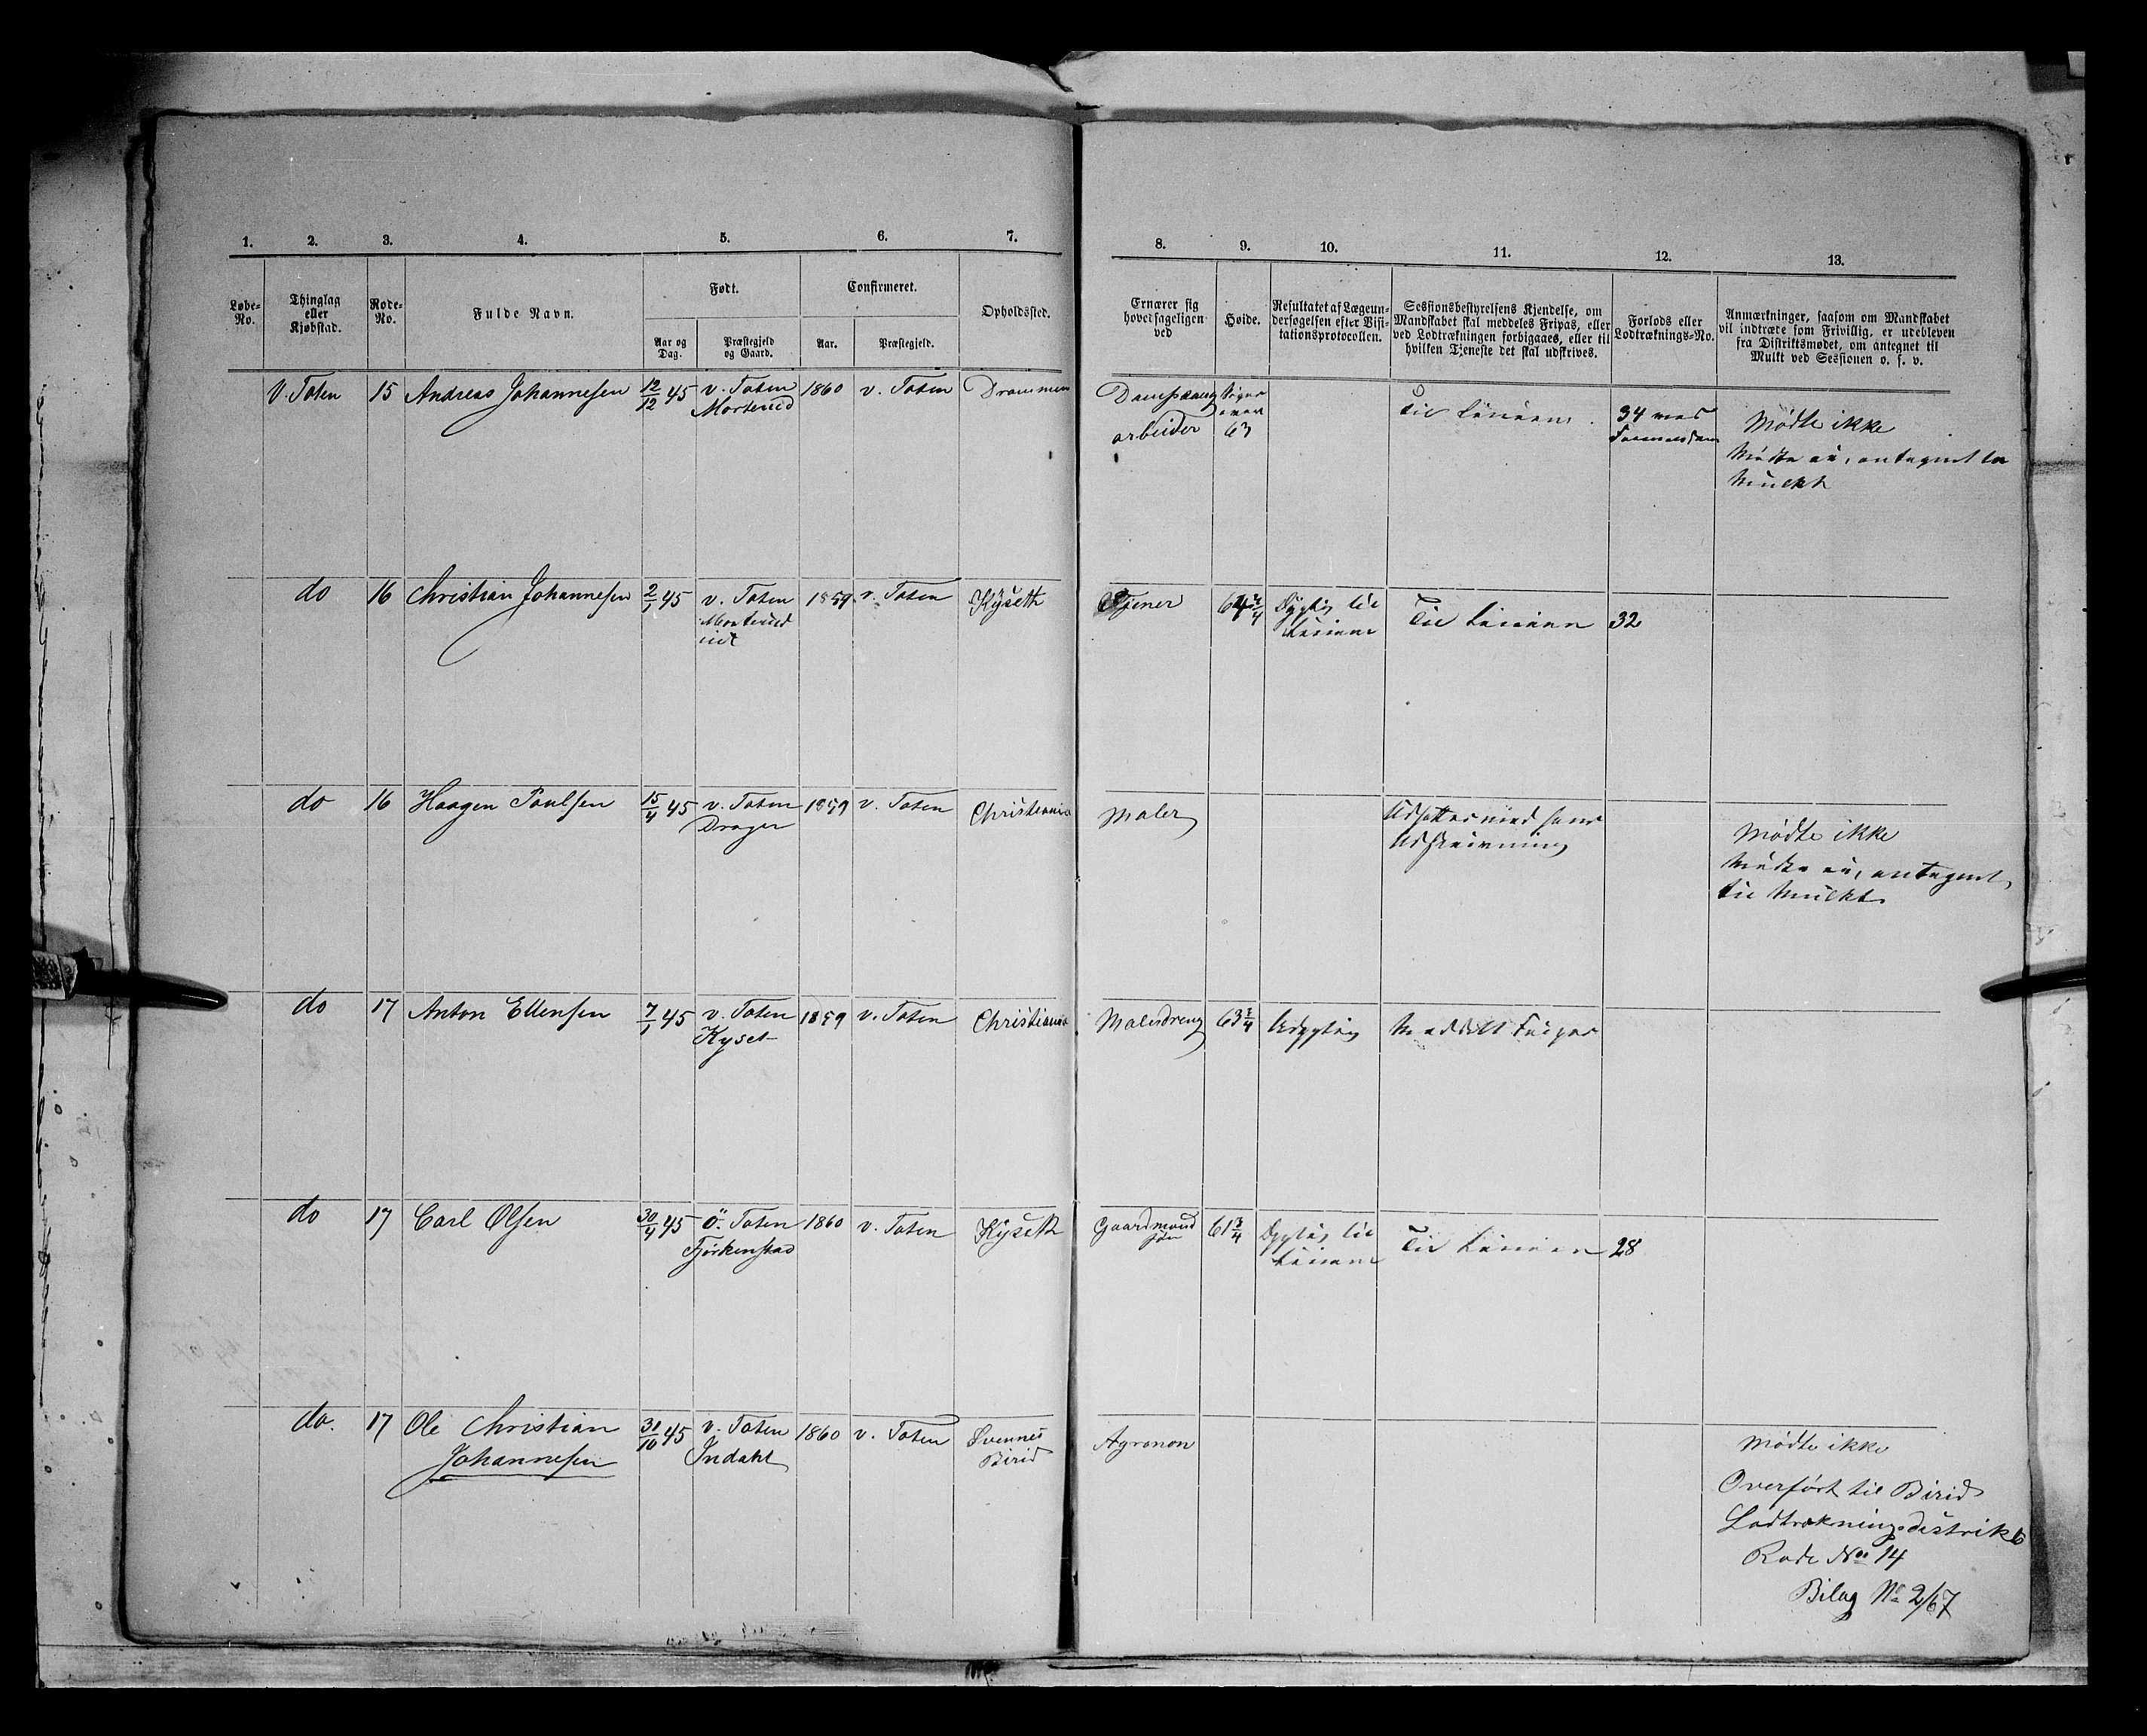 1. 2. 3. 4. 5. 6. 7. 8. 9. 10. 11. 12. 13.
Løbe-No.
Thinglag eller Kjøbstad.
Rode-No.
Fulde Navn.
Født.
Aar og Dag.
Præstegjeld og Gaard.
Confirmeret.
Aar.
Præstegjeld.
Opholdssted.
Ernærer sig hovedsageligen ved
Høide.
Resultatet af Lægeundersøgelsen efter Visitationsprotocollen.
Sessionsbestyrelsens Kjendelse, om Mandskabet skal meddeles Fripas, eller ved Lodtrækningen forbigaaes, eller til hvilken Tjeneste det skal udskrives.
Forlods eller Lodtræknings-No.
Anmærkninger, saasom om Mandskabet vil indtræde som Frivillig, er udebleven fra Distriktsmødet, om antegnet til Mulkt ved Sessionen o. s. v.
V. Toten 15 Andreas Johannesen 12/12 45 v. Toten 1860 v. Toten Drammen
Morterud
arbeider 63 Til Linien 34 Mødte ikke
Mødte ei, antegnet til
Mulkt
do 16 Christian Johannesen 2/1 45 v. Toten 1859 v. Toten Kyseth Tjener 64 3/4 Dygtig til Til Linien 32
Linien
do 16 Haagen Paulsen 15/4 45 v. Toten 1859 v. Toten Christiania Maler Udsættes med hans Mødte ikke
Drager Udskrivning Mødte ei, antegnet
til Mulkt
do 17 Anton Ellensen 7/1 45 v. Toten 1859 v. Toten Christiania Malerdreng 63 3/4 Udygtig Meddelt Fripas
Kyset
do 17 Carl Olsen 30/4 45 Ö. Toten 1860 v. Toten Kyseth Gaardmand 61 3/4 Dygtig til Til Linien 28
søn Linien
do. 17 Ole Christian 31/10 45 v. Toten 1860 v. Toten Svennes Agronon Mødte ikke
Johannesen Indahl Birid
Overført til Birid
Lodtrækningsdistrikt
Rode No 14
Bilag No 2/67